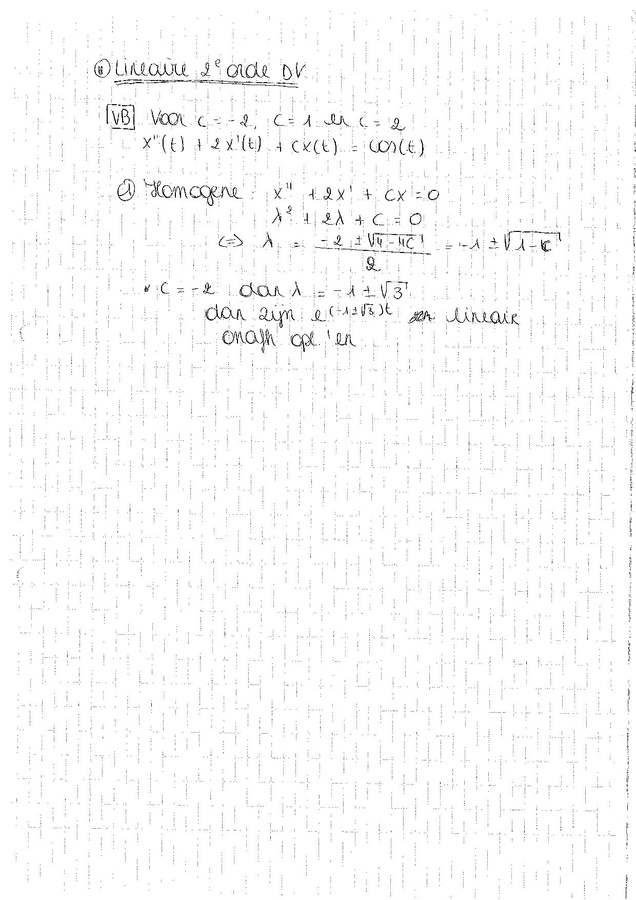 Lineaire 2e orde DV
VB Voor c = -2, c = 1 en c = 2
x''(t) + 2x'(t) + cx(t) = cos(t)
① Homogene: x'' + 2x' + cx = 0
λ² + 2λ + c = 0
(=) λ = (-2 ± √(4-4c))/2 = -1 ± √(1-c)
c = -2 dan λ = -1 ± √3
dan zijn e^((-1±√3)t) lineair
onafh opl'en